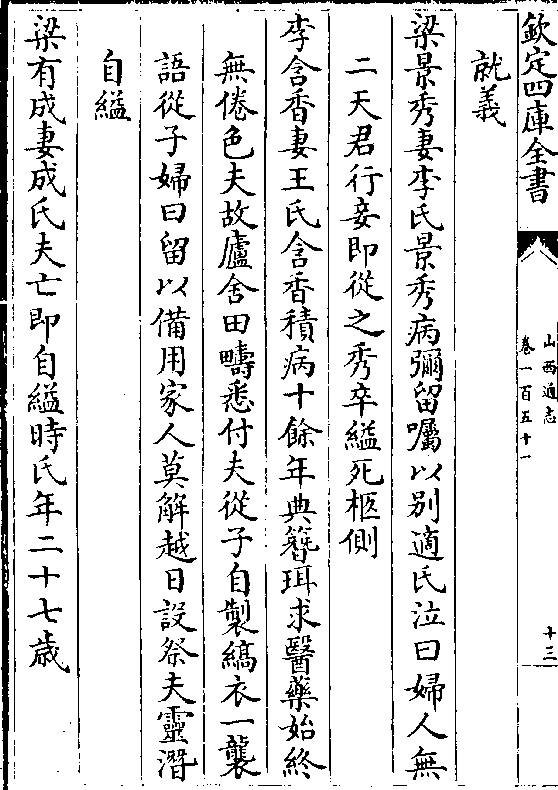 欽定四庫全書
山西通志
卷一百五十一
十三
就義
梁景秀妻李氏景秀病彌留囑以别適氏泣曰婦人無
二天君行妾即從之秀卒縊死柩側
李含香妻王氏含香積病十餘年典簪珥求醫藥始終
無倦色夫故廬舍田疇悉付夫從子自製縞衣一襲
語從子婦曰留以備用家人莫解越日設祭夫靈潛
自縊
梁有成妻成氏夫亡即自縊時氏年二十七歲